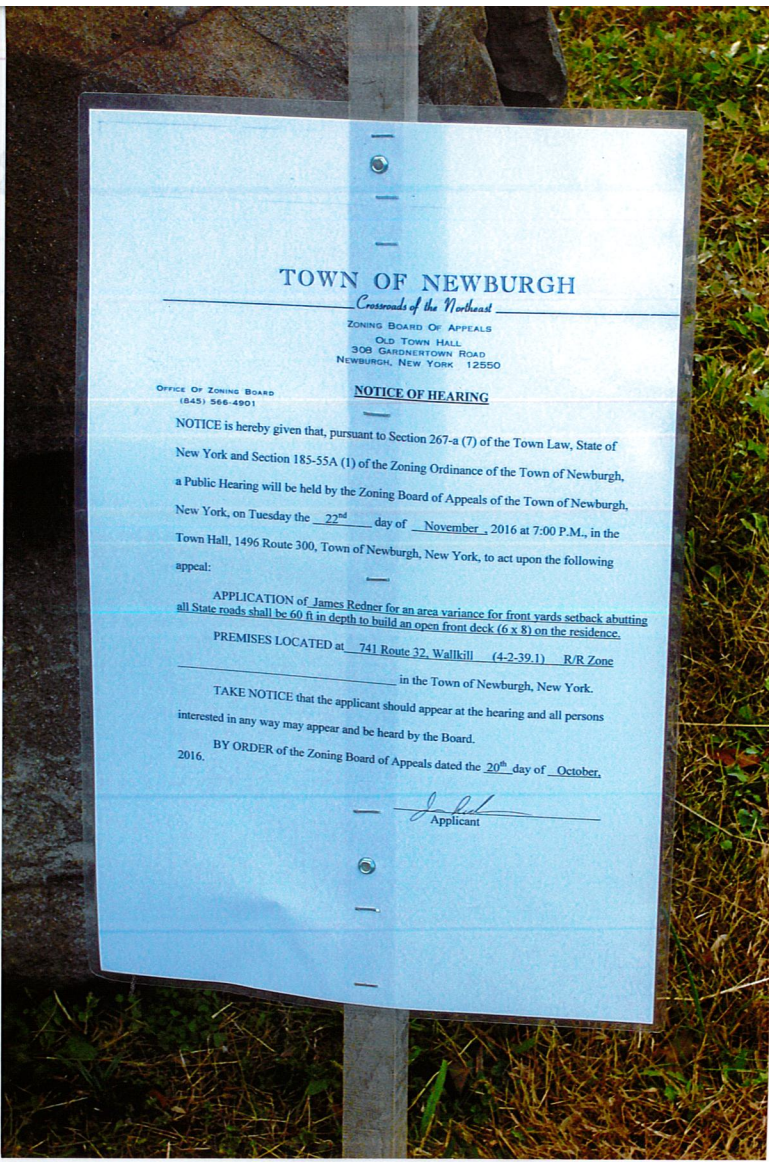 TOWN OF NEWBURGH
Crossroads of the Northeast
ZONING BOARD OF APPEALS
OLD TOWN HALL
308 GARDNERTOWN ROAD
NEWBURGH, NEW YORK 12550
OFFICE OF ZONING BOARD
(845) 566-4901
NOTICE OF HEARING
NOTICE is hereby given that, pursuant to Section 267-a (7) of the Town Law, State of
New York and Section 185-55A (1) of the Zoning Ordinance of the Town of Newburgh,
a Public Hearing will be held by the Zoning Board of Appeals of the Town of Newburgh,
New York, on Tuesday the 22nd day of November , 2016 at 7:00 P.M., in the
Town Hall, 1496 Route 300, Town of Newburgh, New York, to act upon the following
appeal:
APPLICATION of James Redner for an area variance for front yards setback abutting
all State roads shall be 60 ft in depth to build an open front deck (6 x 8) on the residence.
PREMISES LOCATED at 741 Route 32, Wallkill (4-2-39.1) R/R Zone
in the Town of Newburgh, New York.
TAKE NOTICE that the applicant should appear at the hearing and all persons
interested in any way may appear and be heard by the Board.
BY ORDER of the Zoning Board of Appeals dated the 20th day of October,
2016.
Applicant